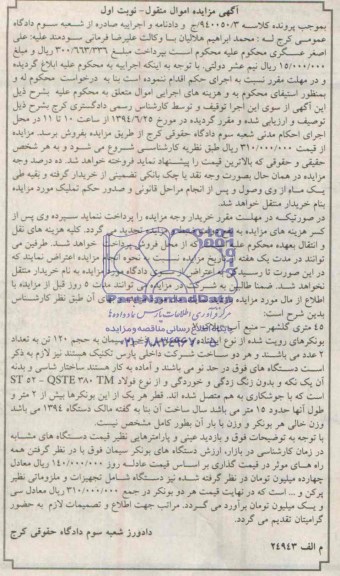 آگهی مزایده اموال منقول- نوبت اول
بموجب پرونده کلاسه ۹۴۰۰۵۰/۳ج و دادنامه و اجراییه صادره از شعبه سوم دادگاه
عمومی کرج له : محمد ابراهیم هلالیان با وکالت علیرضا فرمانی سودمند علیه: علی
اصغر عسگری محکوم علیه محکوم است بپرداخت مبلغ ۳۰۰/۶۶۳/۳۳۶ ریال و مبلغ
۱۵/۰۰۰/۰۰۰ ریال نیم عشر دولتی. با توجه به اینکه اجراییه به محکوم علیه ابلاغ گردیده
و در مهلت مقرر نسبت به اجرای حکم اقدام ننموده است بنا به درخواست محکوم له و
بمنظور استیفای محکوم به و هزینه های اجرایی اموال متعلق به محکوم علیه بشرح ذیل
این آگهی از سوی این اجرا توقیف و توسط کارشناس رسمی دادگستری کرج بشرح ذیل
توصیف و ارزیابی شده و مقرر گردیده در مورخ ۱۳۹۴/۶/۲۵ از ساعت ۱۰ تا ۱۱ در محل
اجرای احکام مدنی شعبه سوم دادگاه حقوقی کرج از طریق مزایده بفروش برسد. مزایده
از قیمت ۳۱۰/۰۰۰/۰۰۰ ریال طبق نظریه کارشناسی شروع می شود و به هر شخص
حقیقی و حقوقی که بالاترین قیمت را پیشنهاد نماید فروخته خواهد شد. ده درصد وجه
مزایده در همان حال بصورت وجه نقد یا چک بانکی تضمینی از خریدار گرفته و بقیه طی
یک ماه از وی وصول و پس از انجام مراحل قانونی و صدور حکم تملیک مورد مزایده
بنام خریدار منتقل خواهد شد.
در صورتیکه در مهلت مقرر خریدار وجه مزایده را پرداخت ننماید سپرده وی پس از
کسر هزینه های مزایده به نفع دولت ضبط و مزایده تجدید می گردد. کلیه هزینه های نقل
و انتقال بعهده محکوم علیه که از محل فروش پرداخت خواهد شد. طرفین می
توانند در مدت یک هفته از تاریخ مزایده نسبت به نحوه انجام مزایده اعتراض نمایند که
در این صورت تا رسیدگی به اعتراض از سوی دادگاه مورد مزایده به نام خریدار منتقل
نخواهد شد. ضمنا طالبین به شرکت در مزایده می توانند مدت ۵ روز قبل از مزایده با
اطلاع از مال مورد مزایده آن طبق نظر کارشناس
بدین شرح است:
ParsNamadData
مرکز فرآوری اطلاعات پارس نماد داده ها
پایگاه اطلاع رسانی مناقصه و مزایده
۰۲۱-۸۸۳۴۹۶۷۰-۵
۴۵ متری گلشهر- منبع آب
بونکرهای رویت شده از نوع سیمان به حجم ۱۲۰ تن به تعداد
۲ عدد می باشند و هر دو ساخت شرکت داخلی پارس تکنیک هستند نیز لازم به ذکر
است دستگاه های فوق در حد نو می باشند و آماده به کار هستند ساختار شاسی و بدنه
آن یک تکه و بدون زنگ زدگی و خوردگی و از نوع فولاد ST ۵۲ – QSTE ۳۸۰ TM
است که با جوشکاری به هم متصل شده اند. قطر هر یک از این بونکرها بیش از ۲ متر و
طول آنها حدود ۱۵ متر می باشد سال ساخت آن بنا به گفته مالک دستگاه ۱۳۹۴ می باشد
وزن خالی هر بونکر و وزن با بار آن بطور کامل مشخص نیست.
با توجه به توضیحات فوق و بازدید عینی و پارامترهایی نظیر قیمت دستگاه های مشابه
در زمان کارشناسی در بازار، ارزش دستگاه های بونکر سیمان فوق با در نظر گرفتن همه
راه های موثر در قیمت گذاری بر اساس قیمت عادله روز ۱۴۰/۰۰۰/۰۰۰ ریال معادل
چهارده میلیون تومان در نظر گرفته شده نیز دستگاه شامل تجهیزات و ملزوماتی نظیر
پرکن و ... است که در نهایت قیمت هر دو بونکر در جمع ۳۱۰/۰۰۰/۰۰۰ ریال معادل سی
و یک میلیون تومان برآورد می گردد. مراتب جهت اطلاع و تصمیمات لازم به حضور
گرامیتان تقدیم می گردد.
دادورز شعبه سوم دادگاه حقوقی کرج
م الف ۲۴۹۴۳